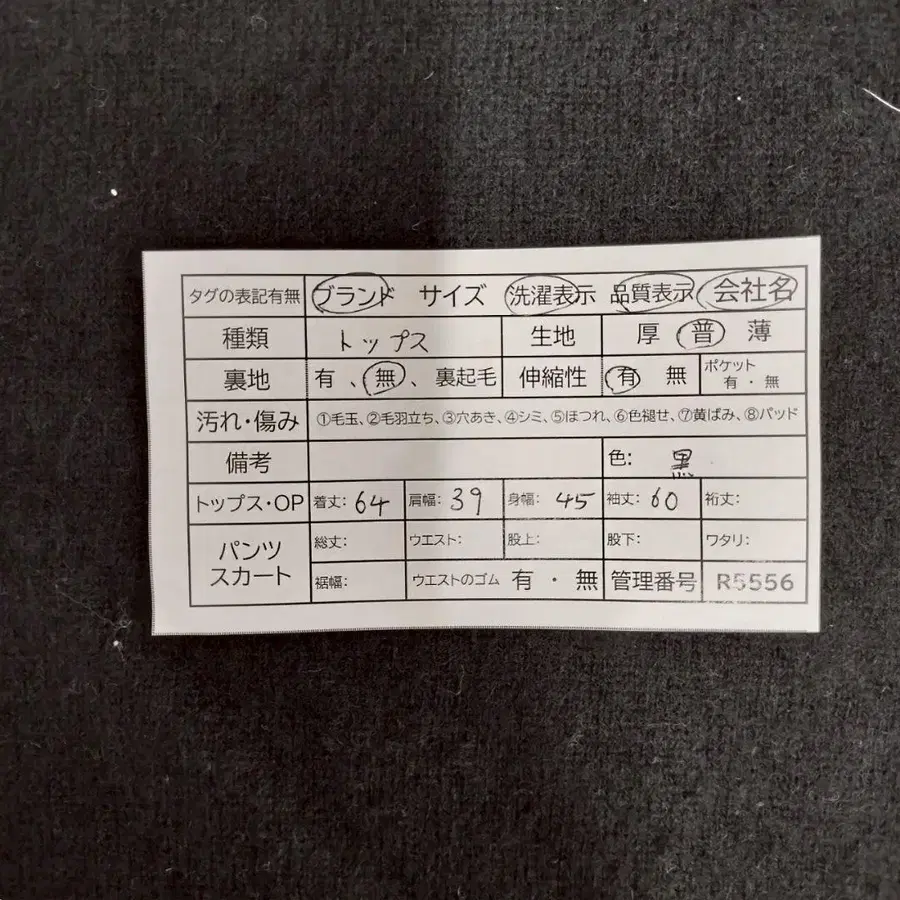 タグの表記有無 ブランド サイズ 洗濯表示 品質表示 会社名
種類 トップス 生地 厚 普 薄
裏地 有、無、裏起毛 伸縮性 有 無 ポケット 有・無
汚れ・傷み ①毛玉、②毛羽立ち、③穴あき、④シミ、⑤ほつれ、⑥色褪せ、⑦黄ばみ、⑧パッド
備考 色: 黒
トップス・OP 着丈: 64 肩幅: 39 身幅: 45 袖丈: 60 裄丈:
パンツ スカート 総丈: ウエスト: 股上: 股下: ワタリ:
裾幅: ウエストのゴム 有・無 管理番号 R5556